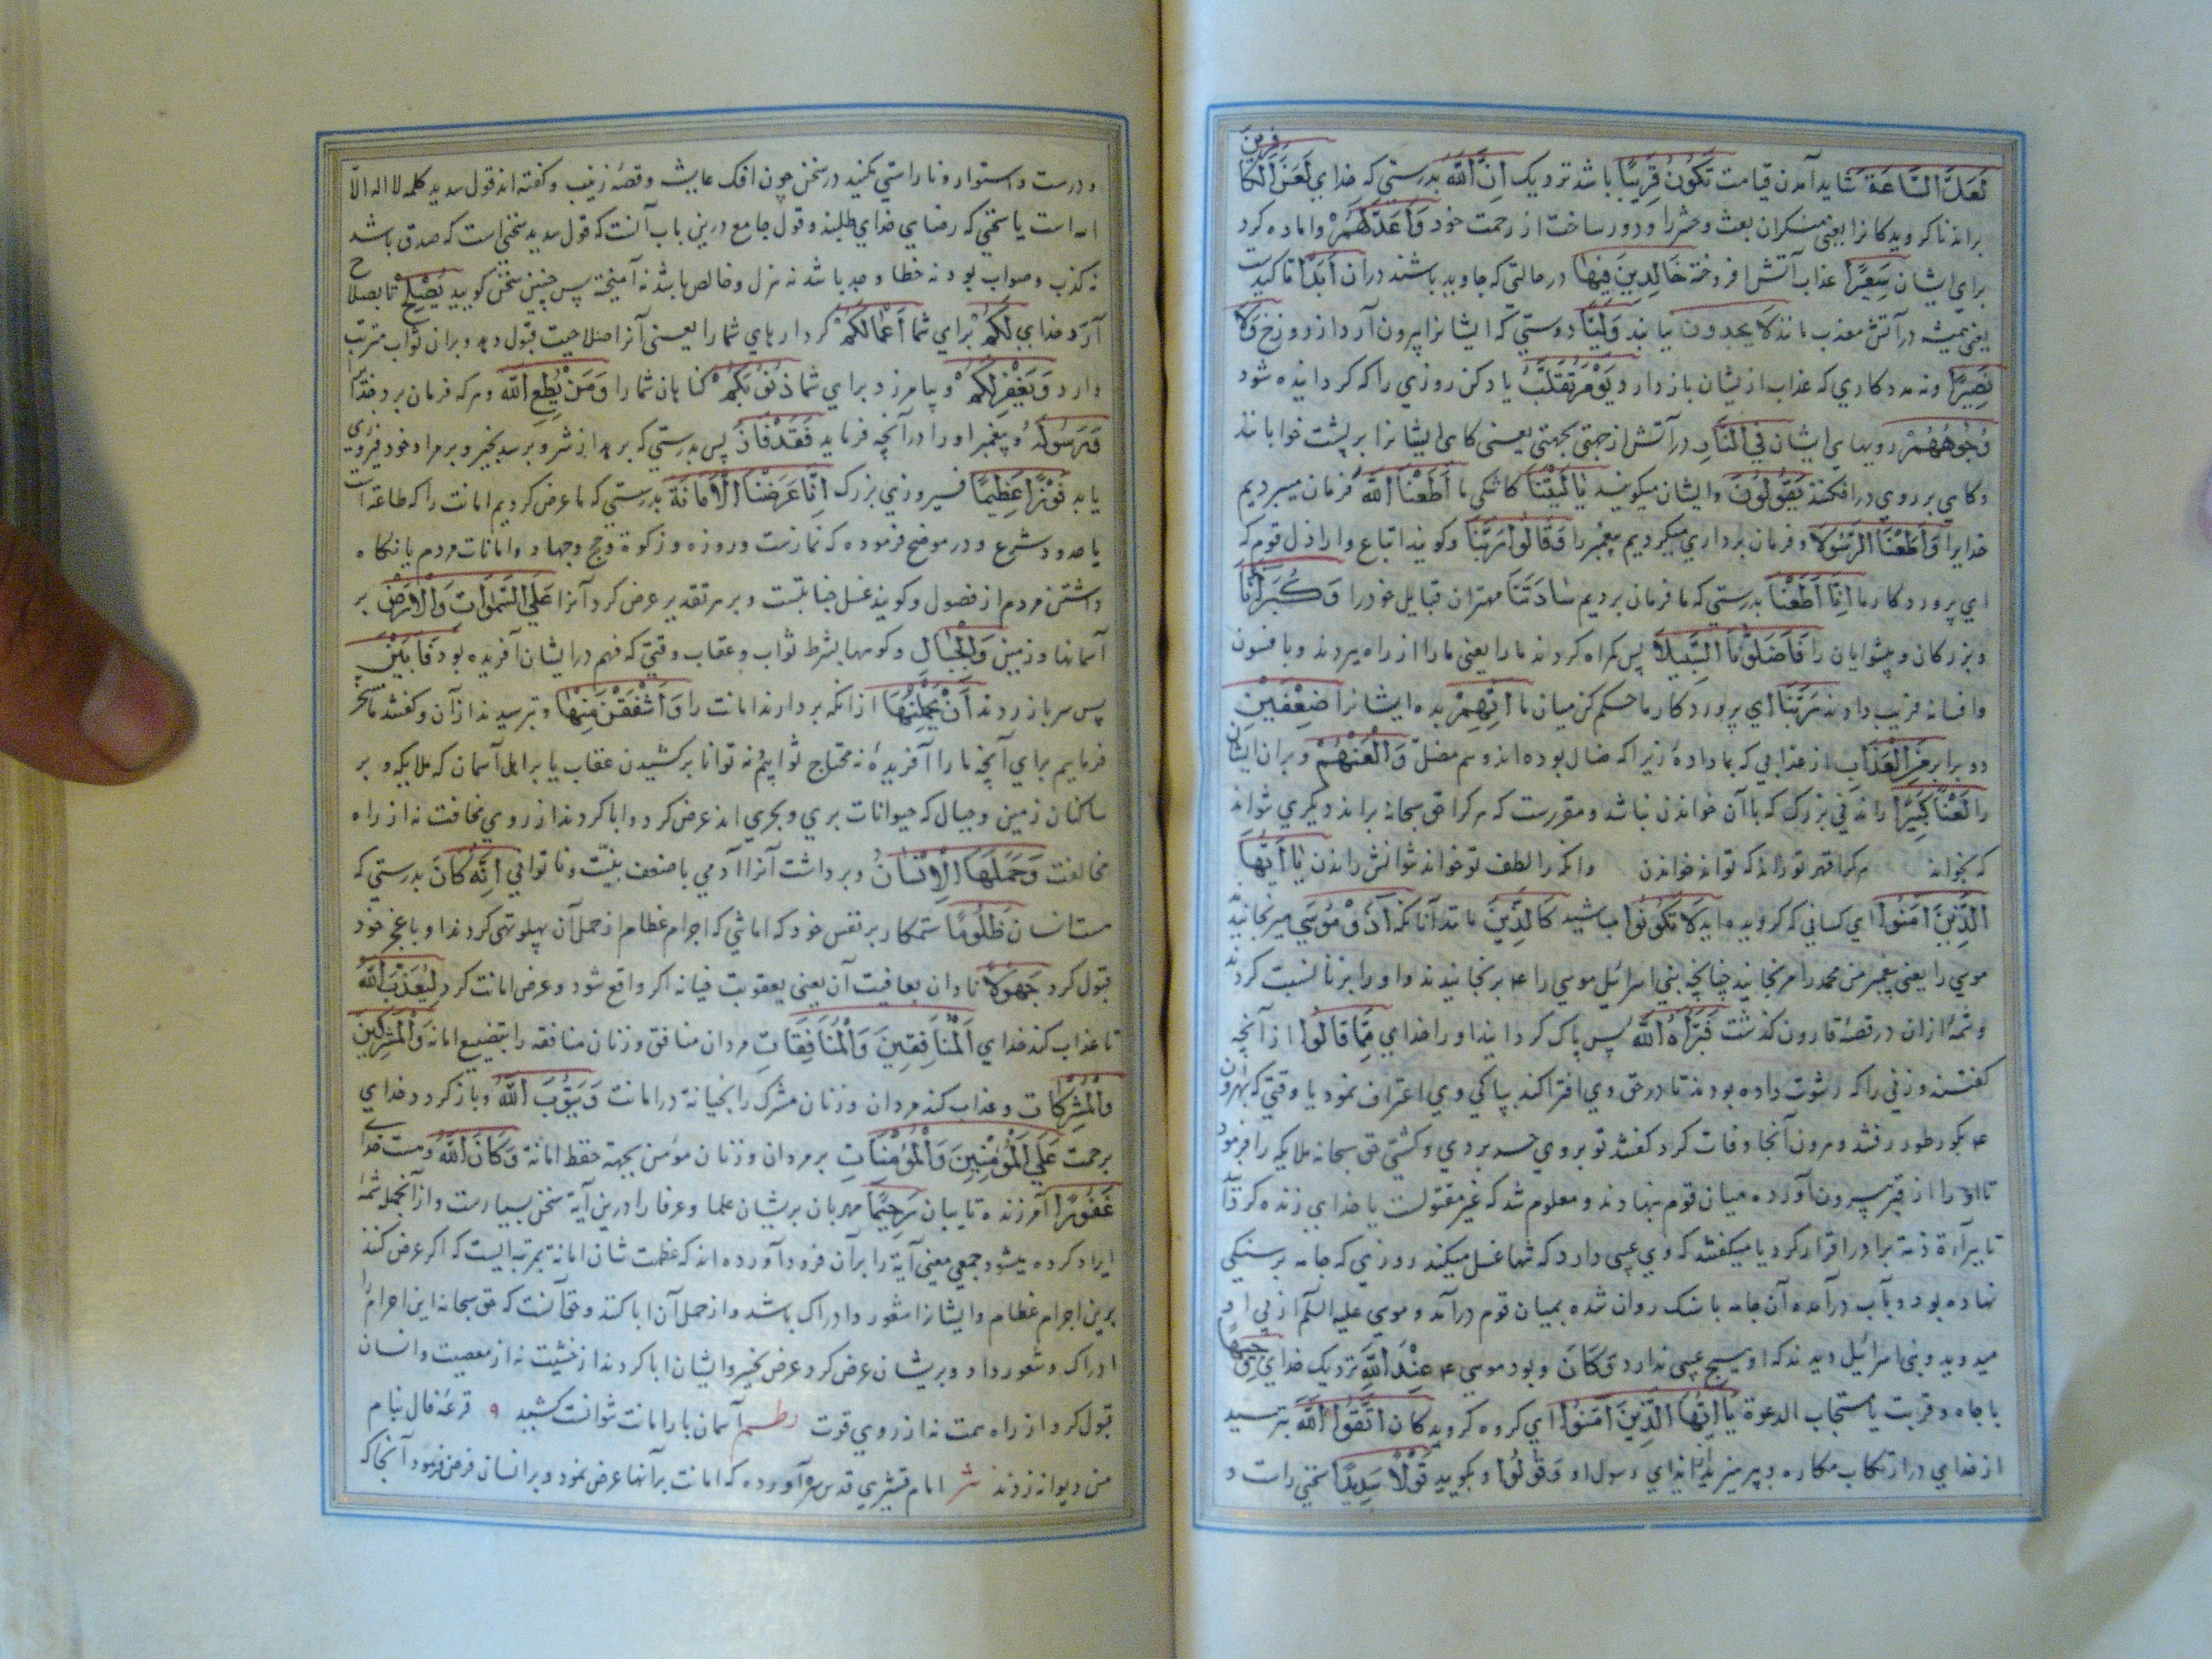 لَعَلَّ السَّاعَةَ شاید آمدن قیامت تَكُونُ قَرِيبًا باشد نزدیک اِنَّ اللّهَ بدرستی که خدای لَعَنَ الْكَافِرِينَ
براند ناکرویدکانرا یعنی منکران بعث و حشر را و دور ساخت از رحمت خود وَاَعَدَّ لَهُمْ واماده کرد
برای ایشان سَعِيرًا عذاب آتش افروخته خَالِدِينَ فِيهَا در حالتی که جاوید باشند در ان اَبَدًا تاکیدست
یعنی همیشه در آتش معذب مانند لَا يَجِدُونَ نیابند وَلِيًّا دوستی که ایشانرا بیرون آرد از دوزخ وَلَا
نَصِيرًا و نه مددکاری که عذاب از یشان بازدارد يَوْمَ تُقَلَّبُ یاد کن روزی را که کردانیده شود
وُجُوهُهُمْ رویهای ایشان فِي النَّارِ در آتش از جهتی بجهتی یعنی کاهی ایشانرا بر پشت خوابانند
و کاهی بر روی درافکنند يَقُولُونَ وایشان میکویند يَا لَيْتَنَا کاشکی ما اَطَعْنَا اللّهَ فرمان میبردیم
خدایرا وَاَطَعْنَا الرَّسُولَا و فرمان برداری میکردیم پیغمبر را وَقَالُوا رَبَّنَا و کویند اتباع و اراذل قوم که
ای پروردکار ما اِنَّا اَطَعْنَا بدرستی که ما فرمان بردیم سَادَتَنَا مهتران قبایل خود را وَكُبَرَاءَنَا
و بزرکان و پیشوایان را فَاَضَلُّونَا السَّبِيلَا پس کمراه کردند ما را یعنی ما را از راه ببردند و بافسون
و افسانه فریب دادند رَبَّنَا ای پروردکار ما حکم کن میان ما اٰتِهِمْ بده ایشانرا ضِعْفَيْنِ
دو برابر مِنَ الْعَذَابِ از عذابی که بما دادهٔ زیرا که ضال بوده اند و هم مضلّ وَالْعَنْهُمْ و بران ایشان
را لَعْنًا كَبِيرًا راندنی بزرک که با آن خواندن نباشد و مقررست که هر کرا حق سبحانه براند دیکری نتواند
که بخواند هرکرا قهر تو راند که تواند خواندن وانکه را لطف تو خواند نتوانش راندن يَا اَيُّهَا
الَّذِينَ اٰمَنُوا ای کسانی که کرویده اید لَا تَكُونُوا مباشید كَالَّذِينَ مانند آنانکه اٰذَوْا مُوسٰي میرنجانیدند
موسی را یعنی پیغمبر من محمد را مرنجانید چنانچه بنی اسرائیل موسی را ۴ برنجانیدند و او را بزنا نسبت کردند
و شمهٔ ازان در قصهٔ قارون کذشت فَبَرَّاَهُ اللّهُ پس پاک کردانید او را خدای مِمَّا قَالُوا از آنچه
کفتند و زنی را که رشوت داده بودند تا در حق وی افترا کند بپاکی وی اعتراف نمود یا وقتی که بهرون
۴ بکوه طور رفتند و هرون آنجا وفات کرد کفتند تو بروی حسد بردی و کشتی حق سبحانه ملایکه را فرمود
تا او را از قبر بیرون آورده میان قوم بنهادند و معلوم شد که غیر مقتولست یا خدای زنده کرد تا
تا بیرآءة ذمة برادر اقرار کرد یا میکفتند که وی عیبی دارد که تنها غسل میکند روزی که جامه بر سنکی
نهاده بود و بآب درآمده آن جامه با سنک روان شده بمیان قوم درآمد و موسی علیه السلم از پی او
میدوید و بنی اسرائیل دیدند که او هیچ عیبی ندارد وَكَانَ و بود موسی ۴ عِنْدَ اللّهِ نزدیک خدای وَجِيهًا
با جاه و قربت یا مستجاب الدعوة يَا اَيُّهَا الَّذِينَ اٰمَنُوا ای کروه کرویدکان اتَّقُوا اللّهَ بترسید
از خدای در ارتکاب مکاره و بپرهیزید از ایذای رسول او وَقُولُوا و بکویید قَوْلًا سَدِيدًا سخنی راست و
و درست و استوار و ناراستی مکنید در سخن چون افک عایشه و قصهٔ زینب و کفته اند قول سدید کلمه لا اله الّا
الله است یا سخنی که رضای خدای طلبند و قول جامع درین باب آنست که قول سدید سخنی است که صدق باشد
نه کذب و صواب بود نه خطا و جد باشد نه هزل و خالص باشد نه آمیخته پس چنین سخن کویید يُصْلِحْ تا بصلاح
آرد خدای لَكُمْ برای شما اَعْمَالَكُمْ کردارهای شما را یعنی آنرا صلاحیت قبول دهد و بران ثواب مترتب
دارد وَيَغْفِرْ لَكُمْ و بیامرزد برای شما ذُنُوبَكُمْ کناهان شما را وَمَنْ يُطِعِ اللّهَ و هر که فرمان برد خدا را
وَرَسُولَهُ و پیغمبر او را در آنچه فرماید فَقَدْ فَازَ پس بدرستی که برهد از شر و برسد بخیر و بر مراد خود فیروزی
یابد فَوْزًا عَظِيمًا فیروزی بزرک اِنَّا عَرَضْنَا الْاَمَانَةَ بدرستی که ما عرض کردیم امانت را که طاعة است
یا حدود شرع و در موضح فرموده که نمازست و روزه و زکوة و حج و جهاد و امانات مردم یا نکاه
داشتن مردم از فضول و کویند غسل جنابتست و بر هر تقدیر عرض کرد آنرا عَلَي السَّمٰوَاتِ وَالْاَرْضِ بر
آسمانها و زمین وَالْجِبَالِ و کوهها بشرط ثواب و عقاب وقتی که فهم در ایشان آفریده بود فَاَبَيْنَ
پس سرباز زدند اَنْ يَحْمِلْنَهَا از انکه بردارند امانت را وَاَشْفَقْنَ مِنْهَا و بترسیدند از آن و کفتند مسخّر
فرمانیم برای آنچه ما را آفریدهٔ نه محتاج ثوابیم نه توانا بر کشیدن عقاب یا بر اهل آسمان که ملایکه و بر
ساکنان زمین و جبال که حیوانات بری و بحری اند عرض کرد و ابا کردند از روی مخافت نه از راه
مخالفت وَحَمَلَهَا الْاِنْسَانُ و برداشت آنرا آدمی با ضعف بنیّت و ناتوانی اِنَّهُ كَانَ بدرستی که
هست انسان ظَلُومًا ستمکار بر نفس خود که امانتی که اجرام عظام از حمل آن پهلو تهی کردند او با عجز خود
قبول کرد جَهُولًا نادان بعاقبت آن یعنی بعقوبت خیانه اکر واقع شود و عرض امانت کرد لِيُعَذِّبَ اللّهُ
تا عذاب کند خدای الْمُنَافِقِينَ وَالْمُنَافِقَاتِ مردان منافق و زنان منافقه را بتضییع امانة وَالْمُشْرِكِينَ
وَالْمُشْرِكَاتِ و عذاب کند مردان و زنان مشرک را بخیانة در امانت وَيَتُوبَ اللّهُ و بازکردد خدای
برحمت عَلَي الْمُؤْمِنِينَ وَالْمُؤْمِنَاتِ بر مردان و زنان مؤمن بجهة حفظ امانة وَكَانَ اللّهُ و هست خدای
غَفُورًا آمرزنده تایبان رَحِيمًا مهربان بریشان علما و عرفا را درین آیة سخن بسیارست و از آنجمله شمهٔ
ایراد کرده میشود جمعی معنی آیة را بر آن فرود آورده اند که عظمت شان امانة بمرتبه ایست که اکر عرض کنند
برین اجرام عظام و ایشانرا شعور و ادراک باشد و از حمل آن ابا کنند و حق آنست که حق سبحانه این اجرام را
ادراک و شعور داد و بریشان عرض کرد عرض تخییر و ایشان ابا کردند از خشیت نه از معصیت و انسان
قبول کرد از راه همت نه از روی قوت نظم آسمان بار امانت نتوانست کشید ٩ قرعهٔ فال بنام
من دیوانه زدند نثر امام قشیری قدس سره آورده که امانت بر آنها عرض نمود و بر انسان فرض فرمود آنجا که